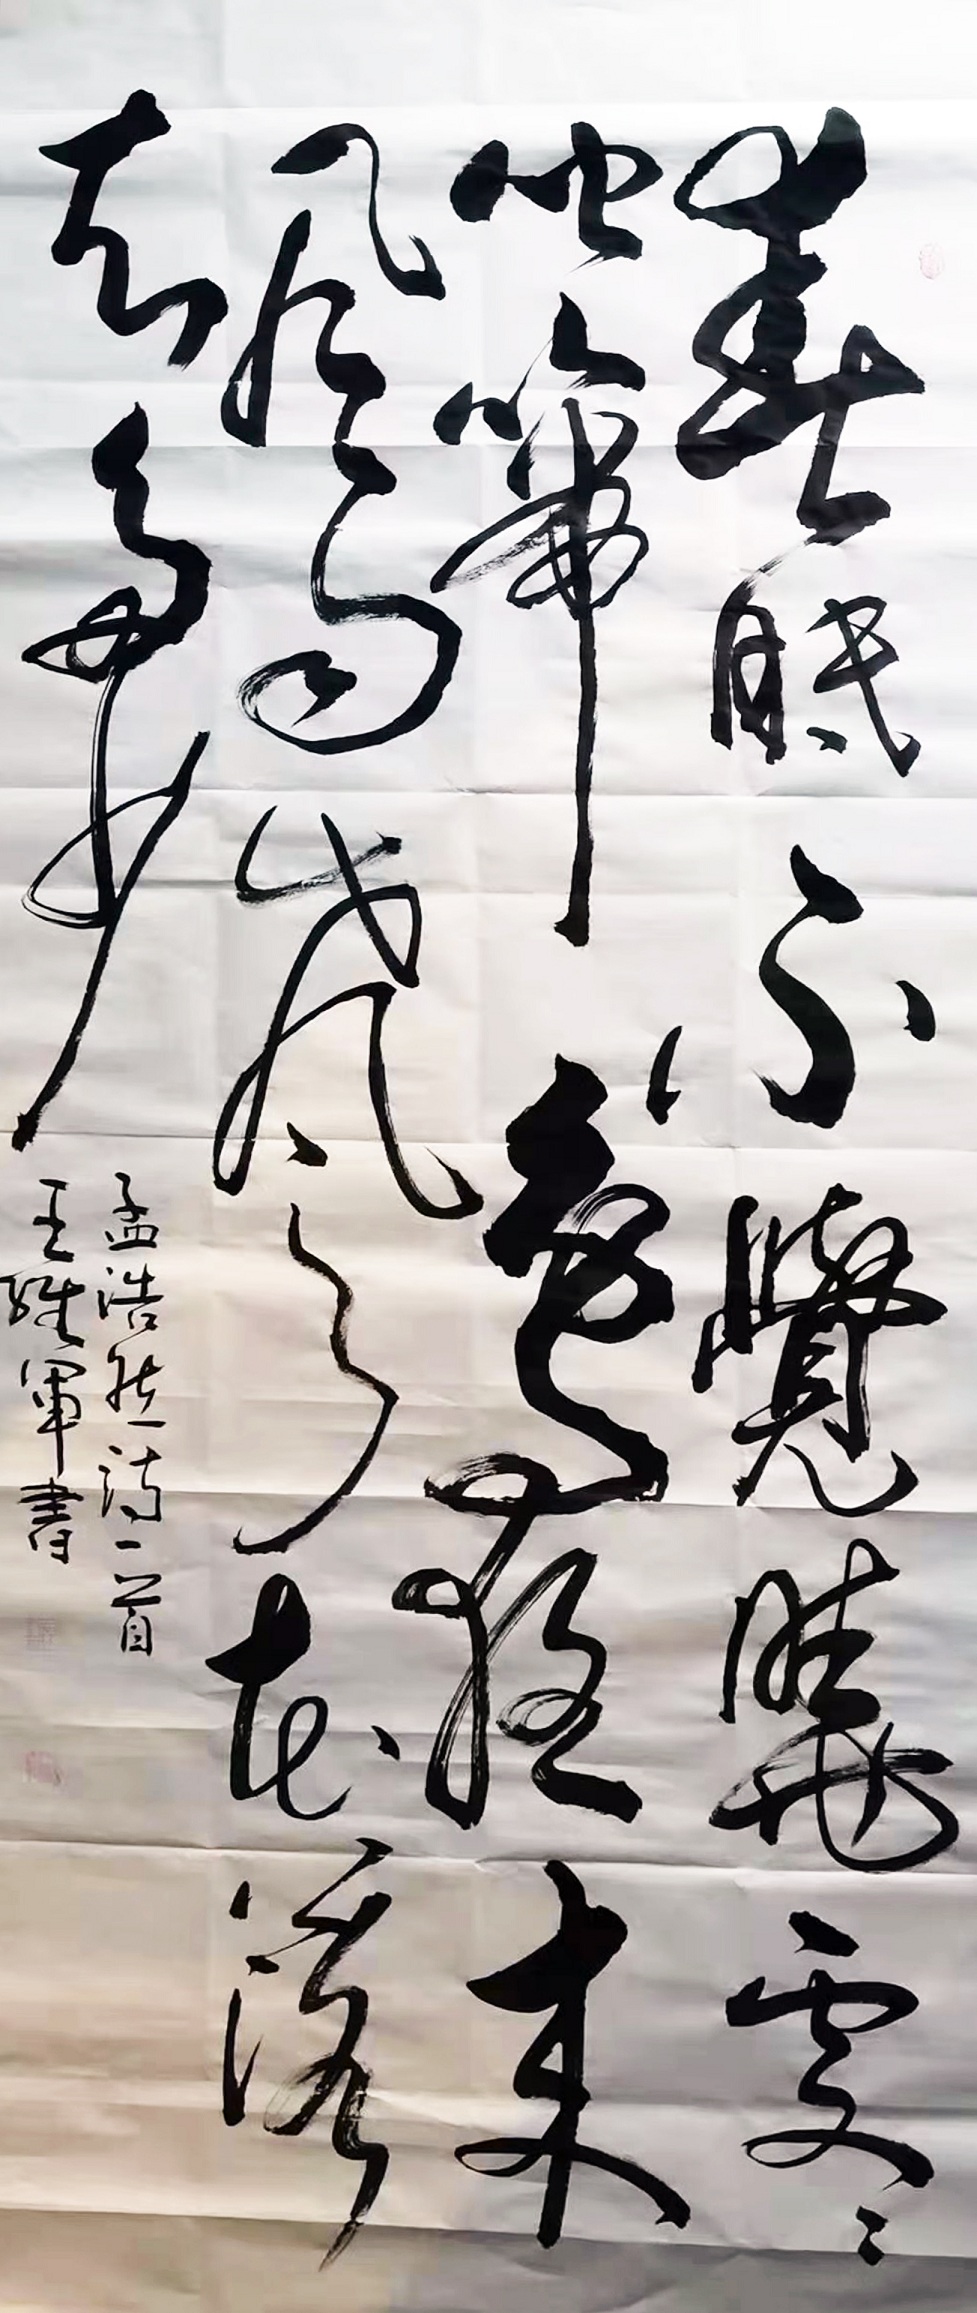 春眠不覺曉處〻
聞啼鳥夜來
風雨聲花落
知多少
孟浩然詩一首
王維軍書